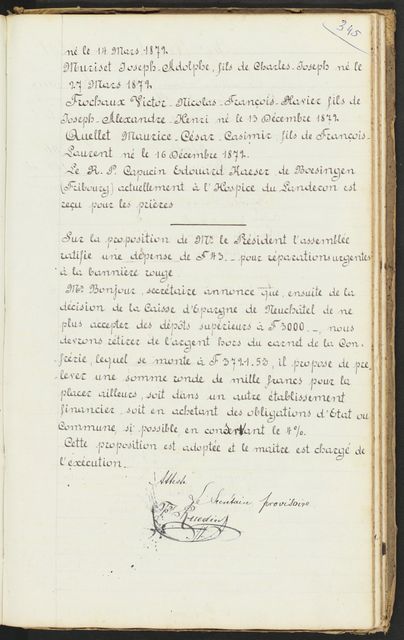 345
né le 14 Mars 1872.
Muriset Joseph-Adolphe, fils de Charles-Joseph né le
27 Mars 1872.
Frochaux Victor-Nicolas-François-Xavier fils de
Joseph-Alexandre-Henri né le 13 Décembre 1872.
Quellet Maurice-César-Casimir, fils de François-
Laurent né le 16 Décembre 1872.
Le R. P. Capucin Edouard Haeser de Boesingen
(Fribourg) actuellement à l'Hospice du Landeron est
reçu pour les prières
Sur la proposition de Mr. le Président l'assemblée
ratifie une dépense de F 43.- pour réparations urgentes
à la bannière rouge.
Mr. Bonjour, secrétaire annonce que, ensuite de la
décision de la Caisse d'Epargne de Neuchâtel de ne
plus accepter des dépôts supérieurs à F 3000.-, nous
devrons retirer de l'argent hors du carnet de la Con-
frérie, lequel se monte à F 3721.53, il propose de pre-
lever une somme ronde de mille francs pour la
placer ailleurs, soit dans un autre établissement
financier, soit en achetant des obligations d'Etat ou
Commune, si possible en the 4%.
Cette proposition est adoptée et le maître est chargé de
l'exécution.
Atteste
Le Secrétaire provisoire